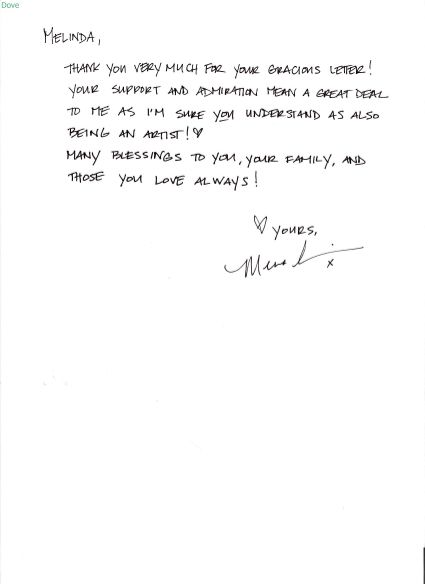 Dove
MELINDA,
THANK YOU VERY MUCH FOR YOUR GRACIOUS LETTER!
YOUR SUPPORT AND ADMIRATION MEAN A GREAT DEAL
TO ME AS I'M SURE YOU UNDERSTAND AS ALSO
BEING AN ARTIST!♡
MANY BLESSINGS TO YOU, YOUR FAMILY, AND
THOSE YOU LOVE ALWAYS!
♡ YOURS,
x